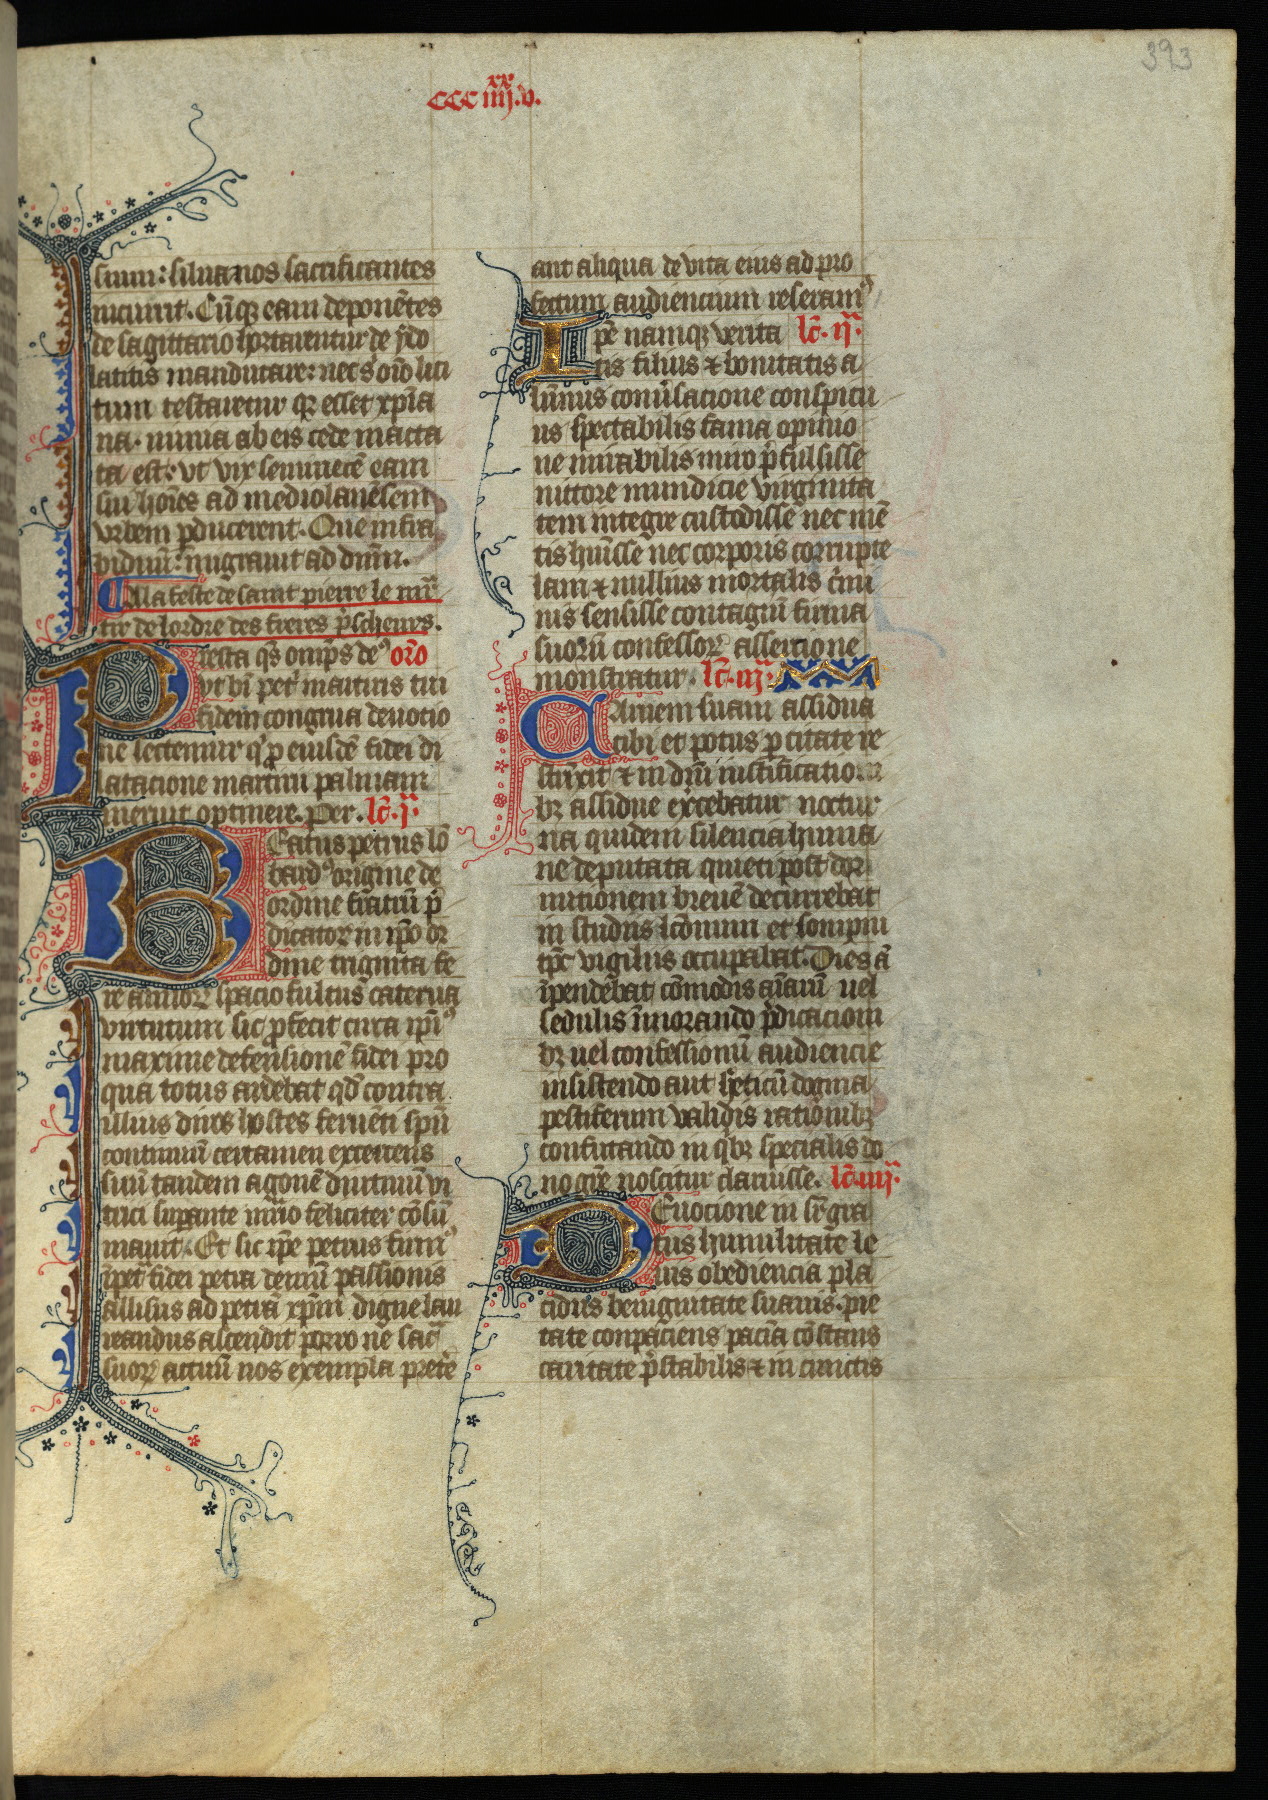 393
CCC iiij.xx v.
sunt: siluanos sacrificantes
inueniunt. Cūq; eam deponētes
de sagittario hortarentur de ydo
latitis manducare: nec s̉ om̄o lici
tum testaretur q̄ esset xp̄ia
na. nimia ab eis cede macta
ta est: vt vix seminecē eam
sui hoīes ad mediolanēsem
vrbem ꝑducerent. Que infra
biduum: migrauit ad dn̄m.
A la feste de saint pierre le mar
tir de lordre des freres p̄scheurs.
Presta q̄s om̄ps deꝰ orō
vt bī petˢ martiris tui
fidem congrua deuotio
ne sectemur q̓ ꝓ eiusdē fidei di
latacione martirii palmam
meruit optinere. Per. lc̄. j.ᵃ
Beatus petrus lō
bardꝰ origine de
ordine fratrū p̄
dicatoꝝ in ip̄o or
dine triginta fe
re annoꝝ spacio fultus caterua
virtutum sic ꝓfecit circa xp̄i
maxime defensionē fidei pro
qua totus ardebat qd̄ contra
illius diros hostes feruēti spū
continuū certamen exercens
suū tandem agonē diutinū vi
ctrici suꝑante mr̄io feliciter cōsū
mauit. Et sic ip̄e petrus firmꝰ
ī petͣ fidei petra demū passionis
allisus ad petrā xp̄m digne lau
reandus ascendit porro ne sacͣ
suoꝝ actuū nos exempla preter
ant aliqua de vita eius ad pro
fectum audiencium reseramꝰ
Ipē namq; verita lc̄. ij.ᵃ
tis filius ⁊ bonitatis a
lūnus conūsacione conspicu
us spectabilis fama opinio
ne mirabilis miro p̄fulsisse
nittore mundicie virginita
tem integre custodisse nec mē
tis huīsse nec corporis corrupte
lam ⁊ nullius mortalis c̓mi
nis sensisse contagiū firma
suorū confessoꝝ assertione
monstratur. lc̄. iij.ᵃ
Carnem suam assidua
cibi et potus ꝑcitate re
strinxit ⁊ in dn̄i iustificationi
bꝫ assidue exercebatur noctur
na quidem silencia huma
ne deputata quieti post dor
mitionem breuē decurrebat
in studiis lc̄onum et sompni
tp̄e vigiliis occupabat. Dies ā
īpendebat cōmodis aīarū uel
sedulis īmorando p̄dicacioni
bꝫ uel confessionū audiencie
insistendo aut heticū dogma
pestiferum validis rationibꝫ
confutando in q̓bꝫ specialis do
no gr̄e noscitur claruisse. lc̄. iiij.ᵃ
Deuocione in sr̄ gra
tus humilitate le
uis obediencia pla
cidus benignitate suauis. pie
tate conpaciens paciā cōstans
caritate p̄stabilis ⁊ in cunctis